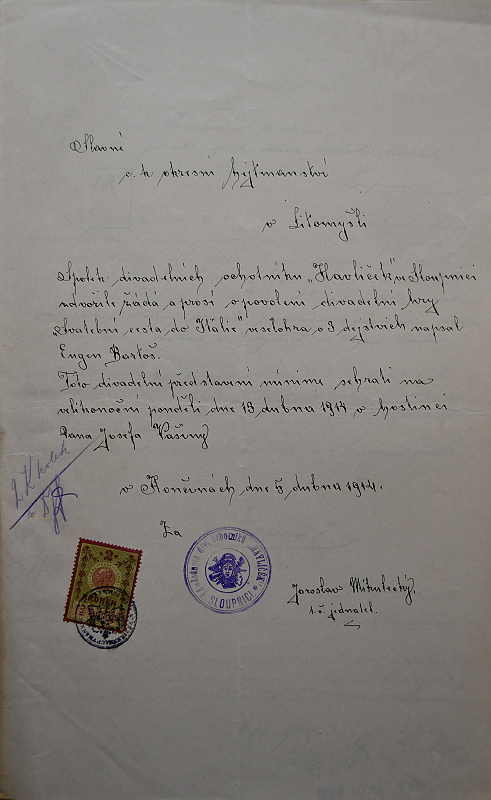 Slavné
c. k. okresní hejtmanství
v Litomyšli
Spolek divadelních ochotníků „Havlíček" v Sloupnici
zdvořile žádá a prosí o povolení divadelní hry
„Svatební cesta do Italie" veselohra o 3 dějstvích napsal
Eugen Bartoš.
Toto divadelní představení míníme sehrati na
velikonoční pondělí dne 13 dubna 1914 v hostinci
Pana Josefa Vašiny
2 K kolek
v Końčinách dne 5 dubna 1914.
Za
div. ochotníků "HAVLÍČEK"
SLOUPNICI
2
Jaroslav Mikulecký,
t. č. jednatel.